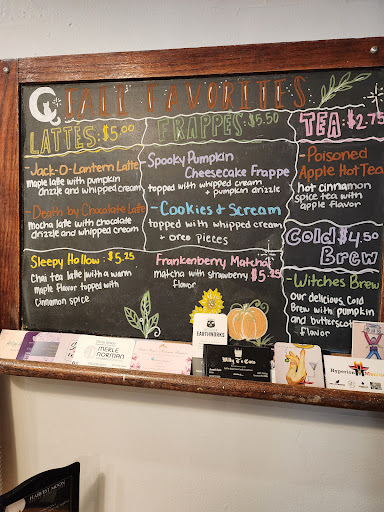 FALL FAVORITES
LATTES: $5.00
-Jack-O-Lantern Latte
maple latte with pumpkin
drizzle and whipped cream
-Death by Chocolate Latte
mocha latte with chocolate
drizzle and whipped cream
Sleepy Hollow: $5.25
Chai tea latte with a warm
maple flavor topped with
cinnamon spice
FRAPPES: $5.50
-Spooky Pumpkin
Cheesecake Frappe
topped with whipped cream
+ pumpkin drizzle
-Cookies & Scream
topped with whipped cream
+ oreo pieces
Frankenberry Matcha:
matcha with strawberry $5.25
flavor
TEA: $2.75
-Poisoned
Apple Hot Tea
hot cinnamon
spice tea with
apple flavor
Cold $4.50
Brew
-Witches Brew
our delicious Cold
Brew with pumpkin
and butterscotch
flavor
EARTHWORKS
MERLE NORMAN
Billy & Coco
HARVEST MOON